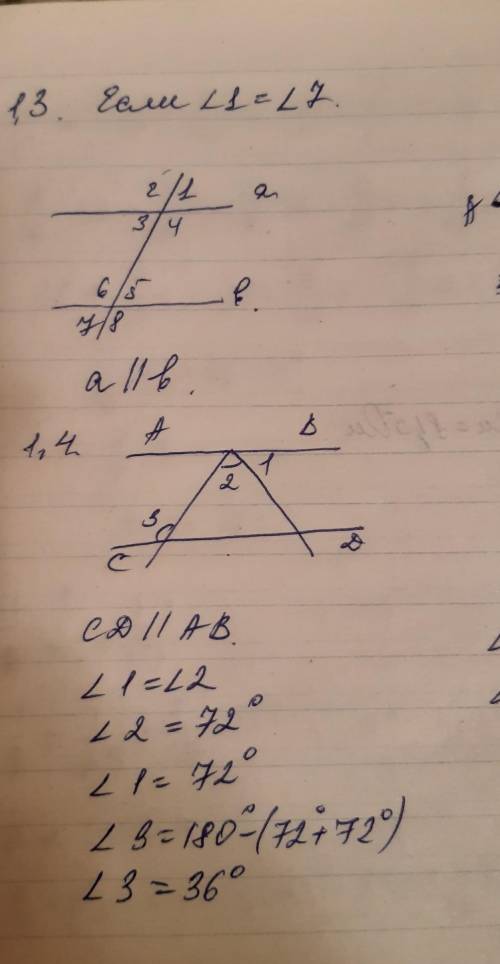 1,3. Если ∠1=∠7.
2 1 a
3 4
6 5 в.
7 8
a||в.
1,4. A B
1
2
3
C D
CD||AB.
∠1=∠2
∠2=72°
∠1=72°
∠3=180°-(72°+72°)
∠3=36°